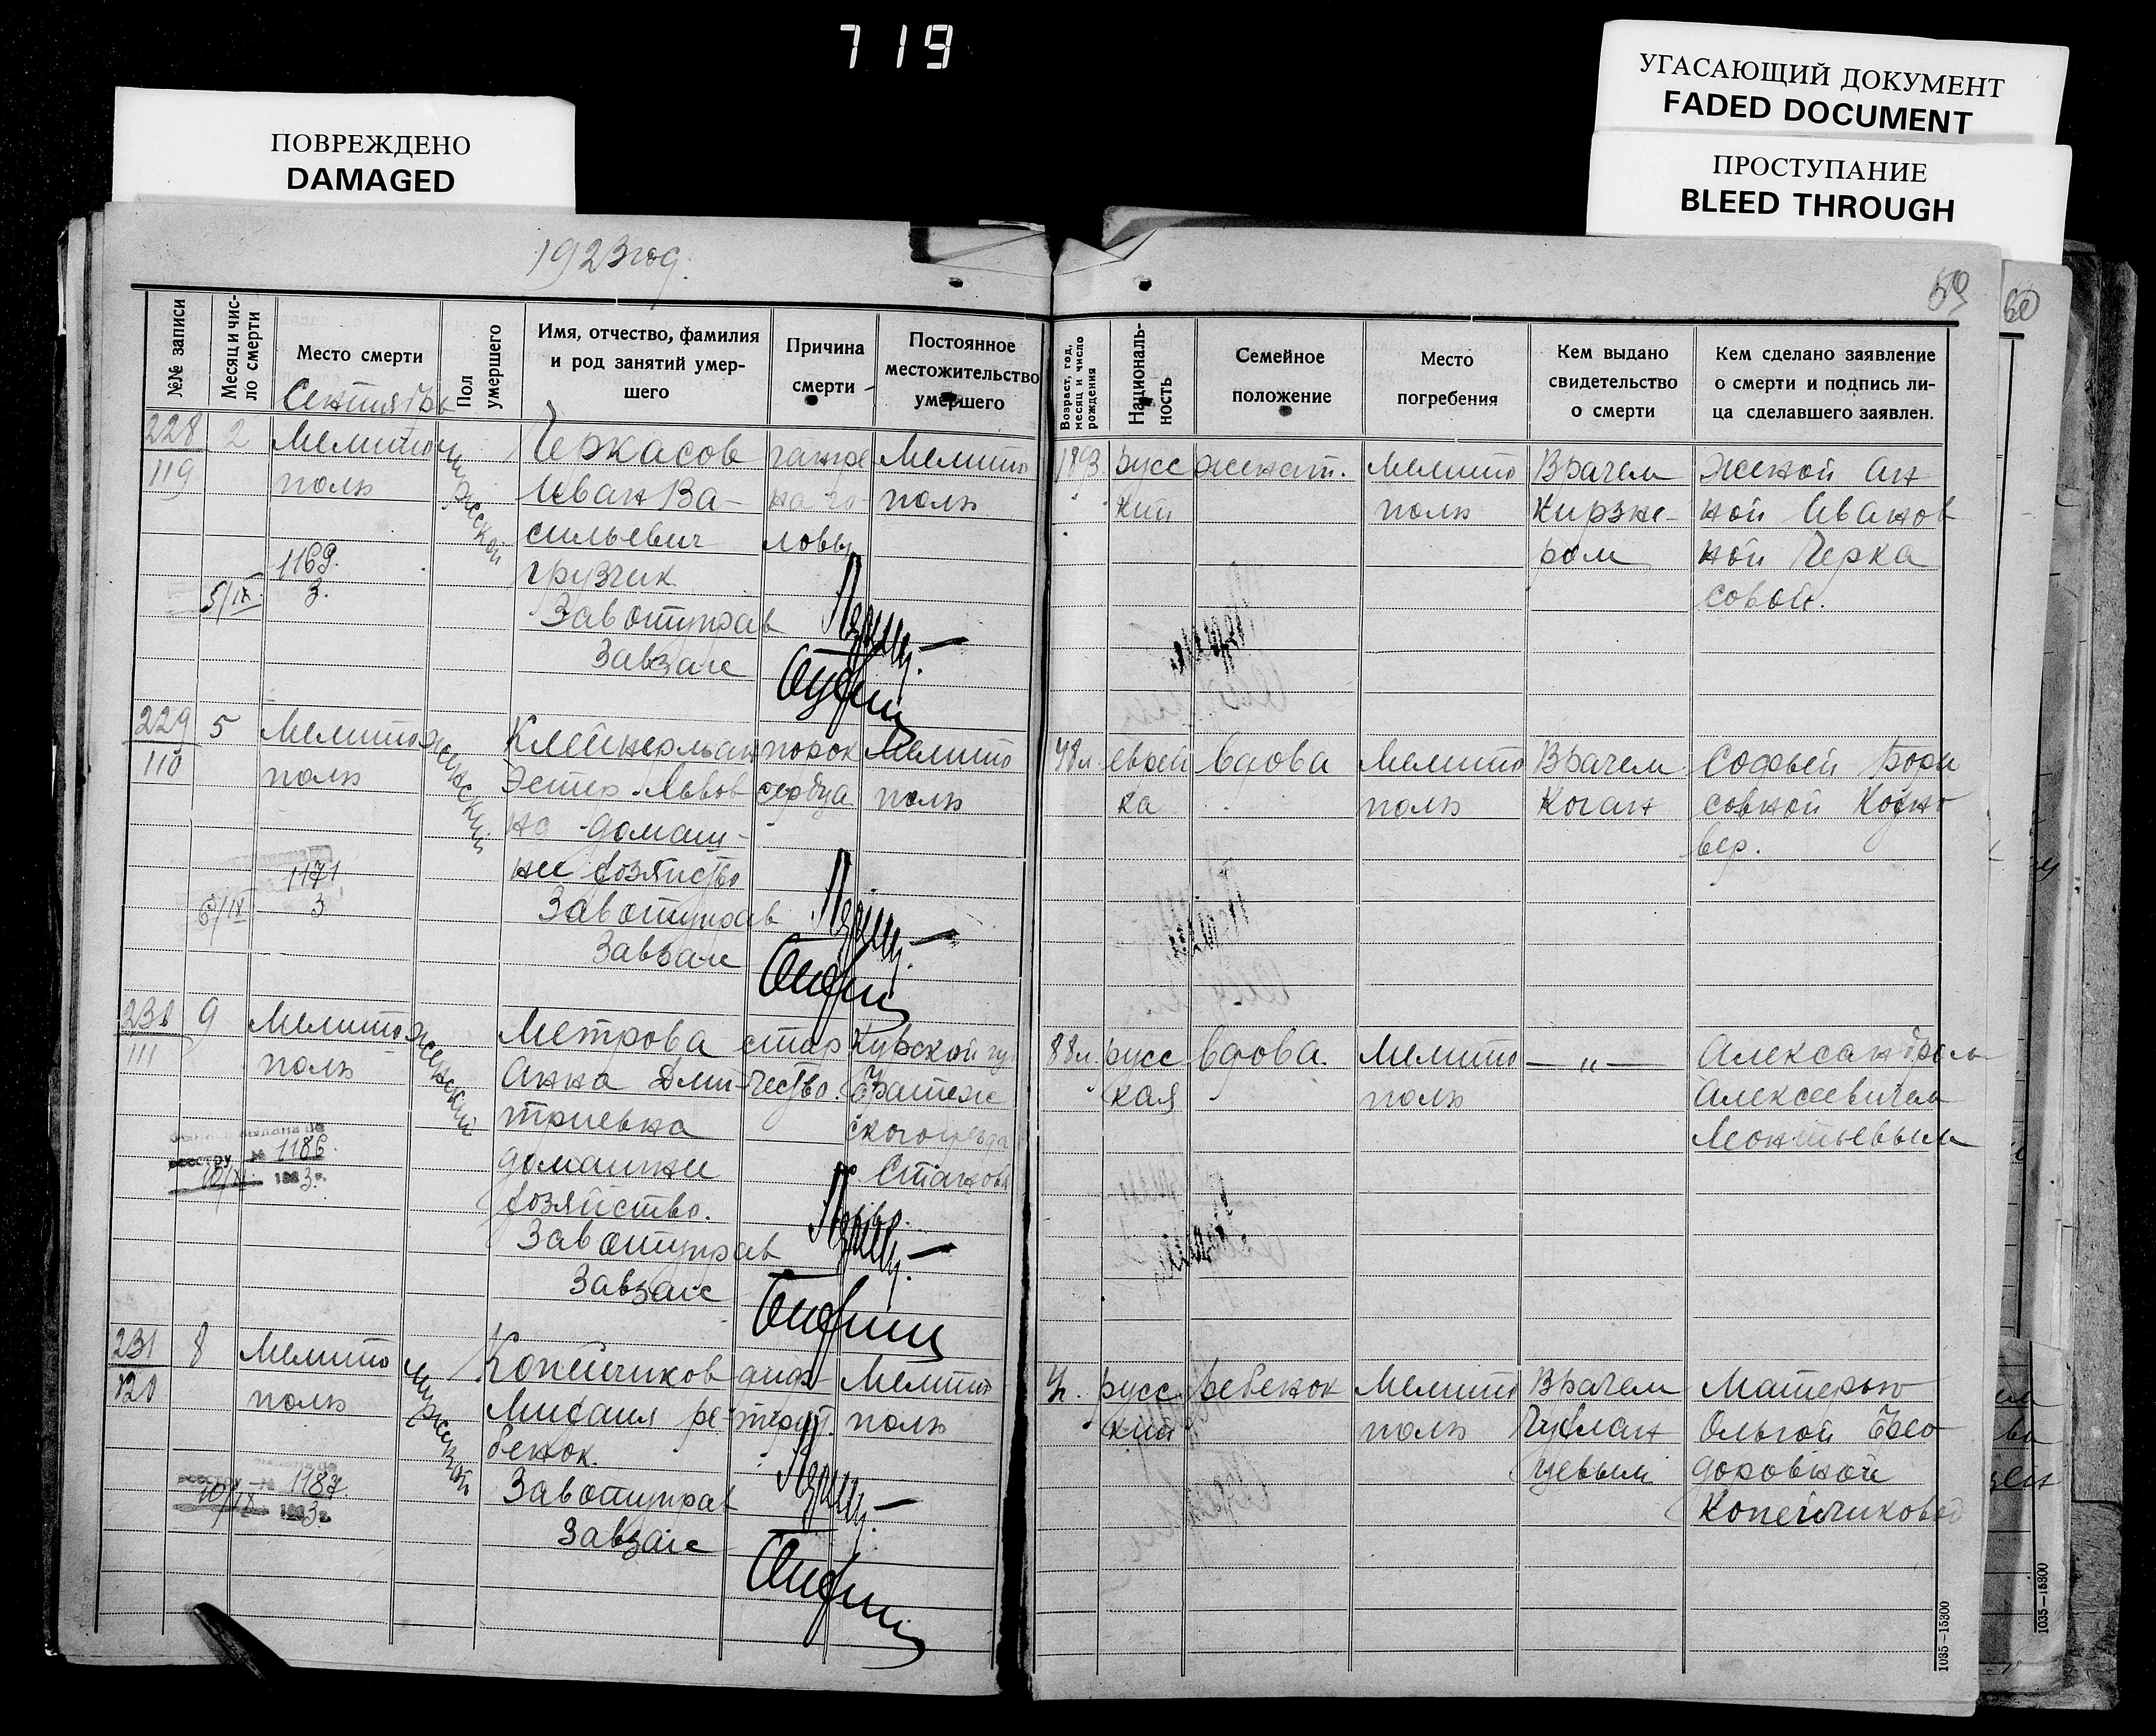 719
ПОВРЕЖДЕНО
DAMAGED
УГАСАЮЩИЙ ДОКУМЕНТ
FADED DOCUMENT
ПРОСТУПАНИЕ
BLEED THROUGH
1923 год.
59
60
№№ записи
Месяц и чис-
ло смерти
Место смерти
Пол
умершего
Имя, отчество, фамилия
и род занятий умер-
шего
Причина
смерти
Постоянное
местожительство
умершего
Возраст, год,
месяц и число
рождения
Националь-
ность
Семейное
положение
Место
погребения
Кем выдано
свидетельство
о смерти
Кем сделано заявление
о смерти и подпись ли-
ца сделавшего заявлен.
Сентябрь
228
119
2
Мелито
поль
мужской
Черкасов
Иван Ва-
сильевич
грузчик
Завотуправ
Завзагс
гангре
на го-
ловы
Мелито
поль
1169.
5/IX 3.
1893.
русс
кий
женат.
Мелито
поль
Врачем
Кирзне-
ром
Женой Ан
ной Иванов
ной Черка
совой.
229
110
5
Мелито
поль
женский
Клейнерман
Эстер Львов
на домаш-
нее хозяйство
Завотуправ
Завзагс
порок
сердца
Мелито
поль
1171
6/IX 3
48л.
еврей
ка
вдова
Мелито
поль
Врачем
Коган
Софьей Бори
совной
вер.
230
111
9
Мелито
поль
женский
Метрова
Анна Дми-
триевна
домашнее
хозяйство.
Завотуправ
Завзагс
стар
чество.
Курской гу
Фатеж
ского уезда
Станов
реестру № 1186.
10/IX 1923 г.
88л.
русс
кая
вдова.
Мелито
поль
— „ —
Александром
Алексеевичем
Леонтьевым
231
120
8
Мелито
поль
мужской
Копейчиков
Михаил ре-
бенок.
Завотуправ
Завзагс
диф-
терит.
Мелито
поль
реестру № 1187.
10/IX 1923 г.
русс
кий
ребенок
Мелито
поль
Врачем
Матерью
Ольгой Фео
доровной
Копейчиковой
1035—15300
1035—15300